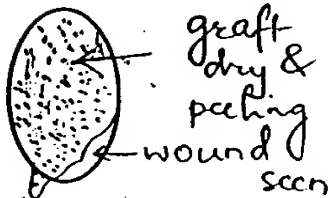 graft
dry &
peeling
wound
seen